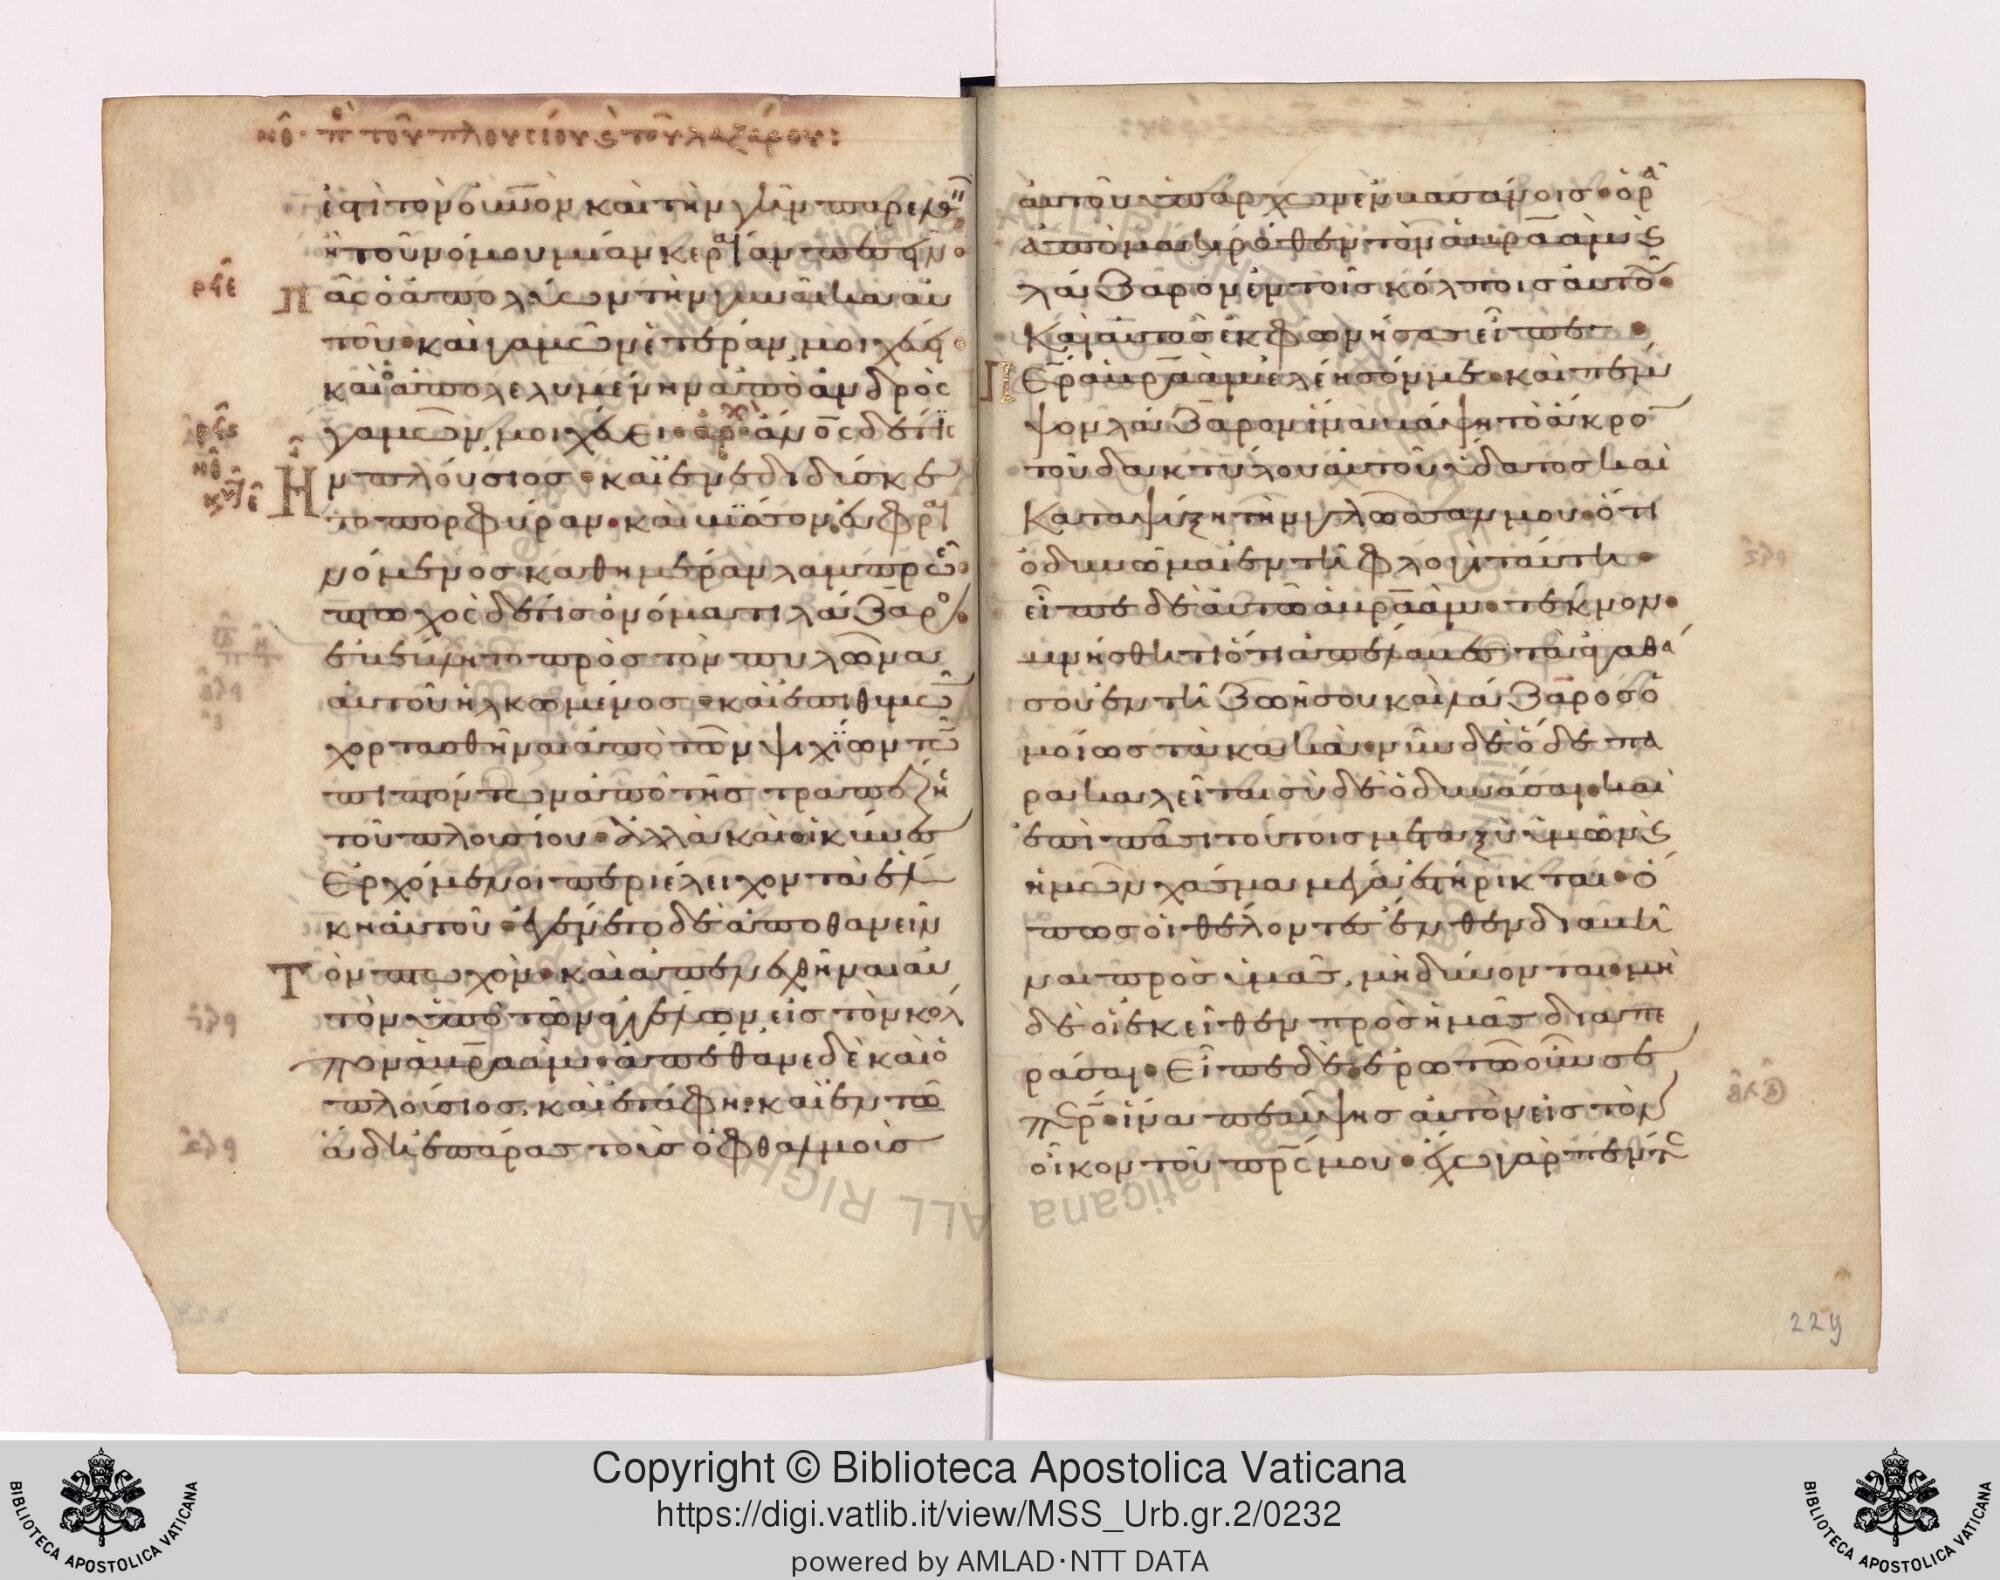 νθ· πε τοῦ πλουσίου ϗ τοῦ λαζάρου:
ἐστὶ τὸν οὐνὸν καὶ τὴν γῆν παρελθ
ἢ τοῦ νόμου μίαν κεραίαν πεσεῖν·
ρϟε
Πᾶς ὁ ἀπολύων τὴν γυναῖκα αυ
τοῦ· καὶ γαμῶν ἑτέραν μοιχάται·
καὶ ὁ ἀπολελυμένην ἀπὸ ἀνδρὸς
ρϟϛ
γαμῶν, μοιχάει· ἀρχ ἄνος δέ τις
νθ
Ἦν πλούσιος· καὶ ἐνεδιδύσκε
το πορφύραν· καὶ βύσσον, εὐφραι
νόμενος καθημέραν λαμπρῶ·
πτωχὸς δέ τις ὀνόματι λάζαρο·
ἐβέβλητο πρὸς τὸν πυλῶνα
αὐτοῦ ἡλκωμένος· καὶ ἐπιθυμῶ
χορτασθῆναι ἀπὸ τῶν ψιχίων τῶ
πιπτόντων ἀπὸ τῆς τραπέζη
τοῦ πλουσίου· ἀλλὰ καὶ οἱ κύνε
ἐρχόμενοι περιέλειχον τὰ ἕλ
κη αὐτοῦ· ἐγένετο δὲ ἀποθανεῖν
Τὸν πτωχὸν· καὶ ἀπενεχθῆναι αυ
τὸν ὑπὸ τῶν ἀγγέλων εἰς τὸν κόλ
πον ἀβραάμ· ἀπέθανε δὲ καὶ ὁ
πλούσιος, καὶ ἐτάφη· καὶ ἐν τῶ
ἅδη ἐπάρας τοὺς ὀφθαλμοὺς
αὐτοῦ ὑπάρχων ἐν βασάνοις· ὁρᾶ
ἀπὸ μακρόθεν τὸν ἀβραὰμ ϗ
λάζαρον ἐν τοῖς κόλποις αὐτοῦ·
Καὶ αὐτὸς ἐκφωνήσας εἶπε·
Περ ἀβραὰμ ἐλέησόν με· καὶ πέμ
ψον λάζαρον ἵνα βάψη τὸ ἄκρο
τοῦ δακτύλου αὐτοῦ ὕδατος καὶ
Καταψύξη τὴν γλῶσσαν μου· ὅτι
ὀδυνῶμαι ἐν τῆ φλογὶ ταύτη·
εἶπε δὲ αὐτῶ ἀβραάμ· τέκνον·
μνήσθητι ὅτι ἀπέλαβες τὰ ἀγαθά
σου ἐν τῆ ζωῆ σου καὶ λάζαρος ὁ
μοίως τὰ κακὰ· νῦν δὲ ὅδε πα
ρακαλεῖται σὺ δὲ ὀδυνᾶσαι· καὶ
ἐπὶ πᾶσι τούτοις μεταξὺ ὑμῶν ϗ
ἡμῶν χάσμα μέγα ἐστήρικται· ὅ
πως οἱ θέλοντες ἔνθεν διαβῆ
ναι πρὸς ὑμᾶς, μὴ δύνονται· μὴ
δὲ οἱ ἐκεῖθεν πρὸς ἡμᾶς διαπε
ράσαι· Εἶπε δέ· ἐρωτῶ οὖν σε
περ· ἵνα πέμψης αὐτὸν εἰς τὸν
οἶκον τοῦ πρς μου· ἔχω γὰρ πέντε
229
Copyright © Biblioteca Apostolica Vaticana
https://digi.vatlib.it/view/MSS_Urb.gr.2/0232
powered by AMLAD·NTT DATA
BIBLIOTECA APOSTOLICA VATICANA
BIBLIOTECA APOSTOLICA VATICANA